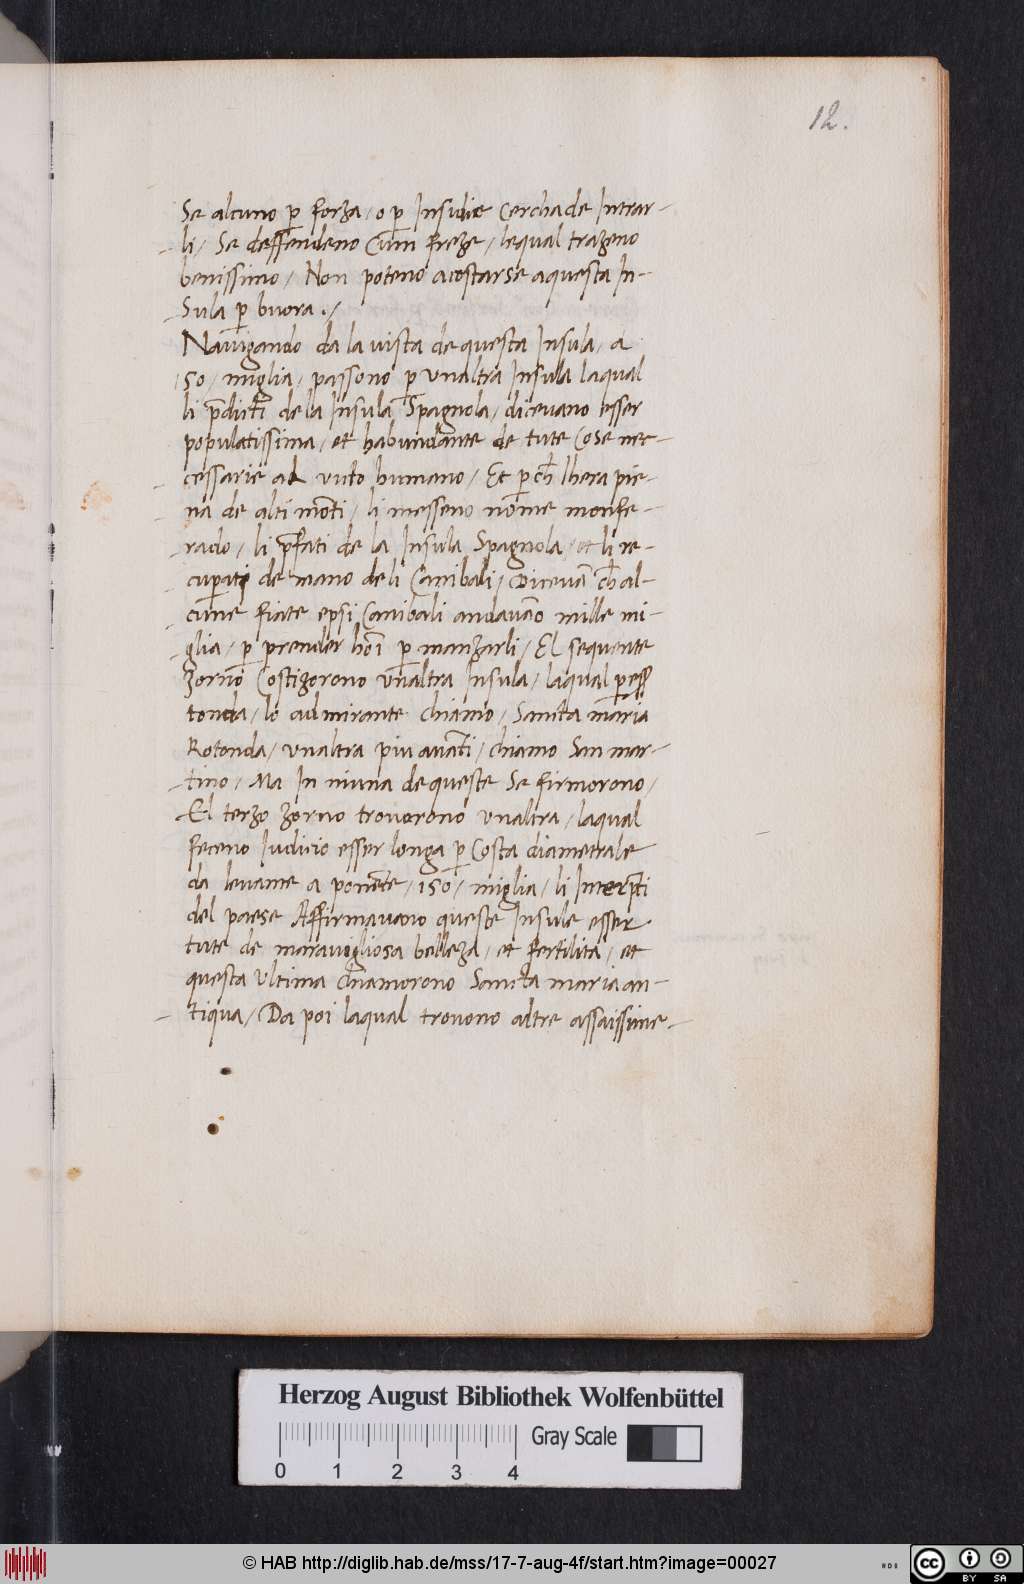 12.
Se alcuno p̱ forza / o p̱ Insidie Cerchade Intrar-
li / Se deffendeno Cum freze / lequal trazeno
benissimo / Non poteno acostarse aquesta In-
Sula p̱ buora . /
Nauigando da la uista de questa Insula / a
150 / miglia / passono p̱ unaltra Insula laqual
li p̄dicti de la Insula Spagnola / diceuano esser
populatissima / et habundante de tute Cose nec-
cessarie al uicto humano / Et p̱ch̄ lhera pie-
na de alti mōti / li messeno nome monfe-
rado / li p̄fati de la Insula Spagnola / et li re-
cuperati de mano de li Canibali / Diceuā ch̄ al-
cune fiate epsi Canibali andauāo mille mi-
glia / p̱ prender hōi p̱ manzarli / El sequente
zorno Costizorono unaltra Insula / laqual p̱ ess̄
tonda / lo admirante chiamo / Sancta maria
Rotonda / unaltra piu auāti / chiamo San mar-
tino / Ma In niuna de queste Se firmorono /
El terzo zorno trouorono unaltra / laqual
feceno Iudicio esser longa p̱ Costa diametrale
da leuante a ponēte / 150 / miglia / li Interp̄ti
del paese Affirmauono queste Insule esser
tute de marauigliosa belleza / et fertilita / et
questa ultima chiamorono Sancta maria an-
tiqua / Da poi laqual trouono altre assaissime-
Herzog August Bibliothek Wolfenbüttel
Gray Scale
0 1 2 3 4
© HAB http://diglib.hab.de/mss/17-7-aug-4f/start.htm?image=00027
cc BY SA